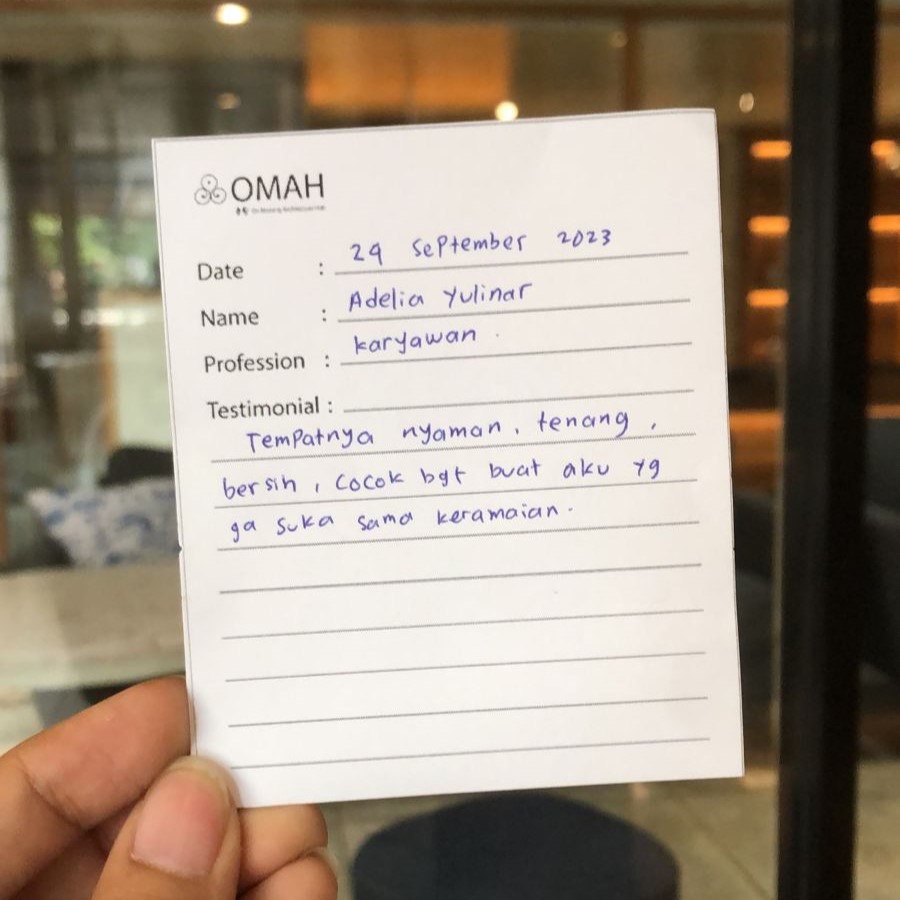 OMAH
Date : 29 September 2023
Name : Adelia Yulinar
Profession : karyawan
Testimonial :
Tempatnya nyaman, tenang,
bersih, cocok bgt buat aku yg
ga suka sama keramaian.